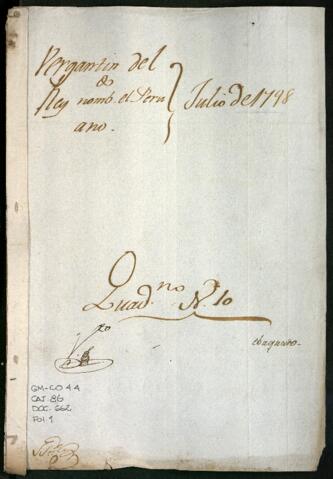 Vergantin del
Rey nomb. el Peru
ano.
Julio de 1798
Quad.no N. 10
GM-CO 44
CAJ. 86
DOC. 662
FOl. 1